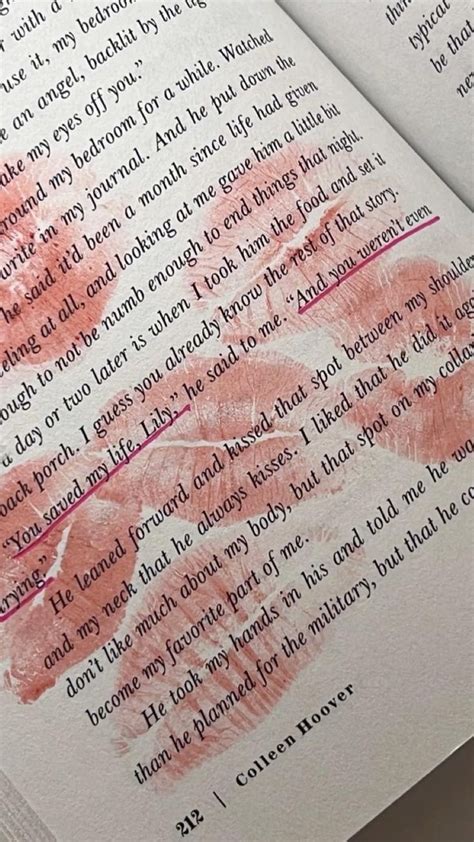 r with a
use it, my bedroom
e an angel, backlit by the lig
ake my eyes off you."
round my bedroom for a while. Watched
write in my journal. And he put down the
he said it'd been a month since life had given
eling at all, and looking at me gave him a little bit
ough to not be numb enough to end things that night.
a day or two later is when I took him the food and set it
back porch. I guess you already know the rest of that story.
"You saved my life, Lily," he said to me. "And you weren't even
trying."
He leaned forward and kissed that spot between my shoulder
and my neck that he always kisses. I liked that he did it aga
don't like much about my body, but that spot on my colla
become my favorite part of me.
He took my hands in his and told me he wa
than he planned for the military, but that he co
212 | Colleen Hoover
thin
typical
be that
ne